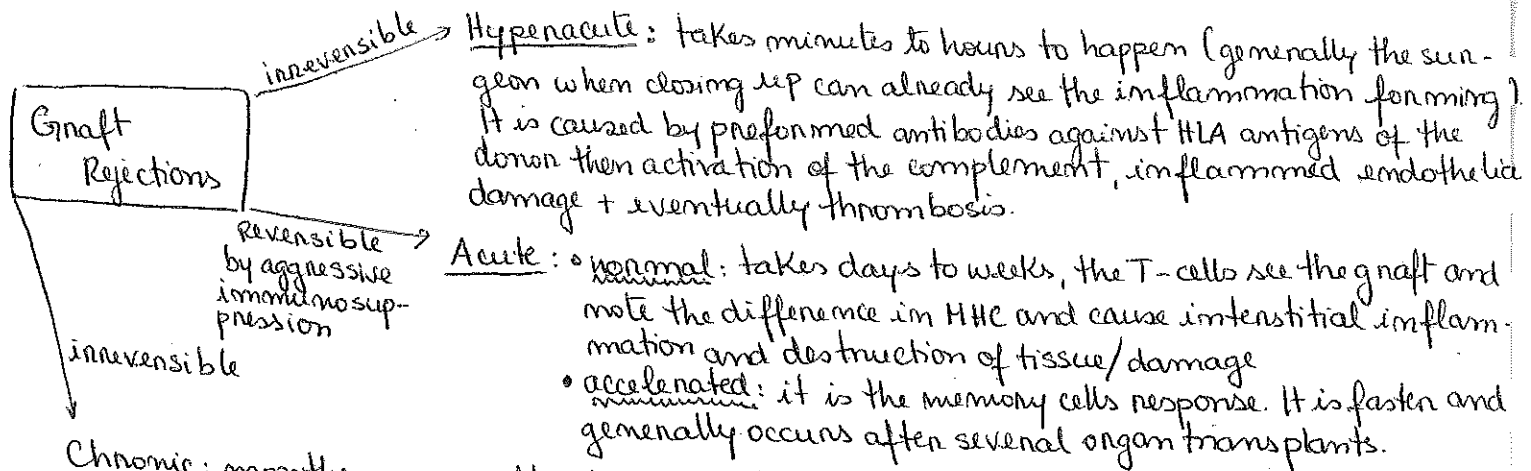 irreversible
Hyperacute: takes minutes to hours to happen (generally the sur-
geon when closing up can already see the inflammation forming).
It is caused by preformed antibodies against HLA antigens of the
donor then activation of the complement, inflammed endothelia
damage + eventually thrombosis.
Graft
Rejections
Reversible
by aggressive
immunosup-
pression
Acute: • normal: takes days to weeks, the T-cells see the graft and
note the difference in MHC and cause interstitial inflam-
mation and destruction of tissue/damage
• accelerated: it is the memory cells response. It is faster and
generally occurs after several organ transplants.
irreversible
Chronic: